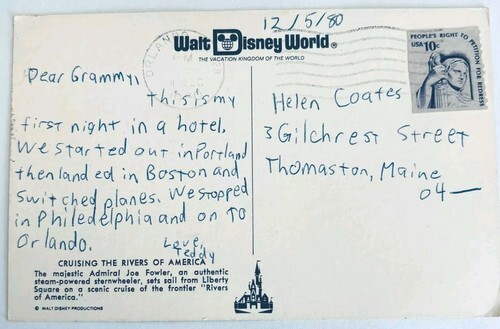 12/5/80
Walt Disney World®
THE VACATION KINGDOM OF THE WORLD
ORLANDO
PM
PEOPLE'S RIGHT TO PETITION FOR REDRESS
USA 10c
Dear Grammy,
This is my
first night in a hotel.
We started out in Portland
then landed in Boston and
switched planes. We stopped
in Philadelphia and on TO
Orlando.
Love,
Teddy
Helen Coates
3 Gilchrest Street
Thomaston, Maine
04—
CRUISING THE RIVERS OF AMERICA
The majestic Admiral Joe Fowler, an authentic
steam-powered sternwheeler, sets sail from Liberty
Square on a scenic cruise of the frontier "Rivers
of America."
© WALT DISNEY PRODUCTIONS